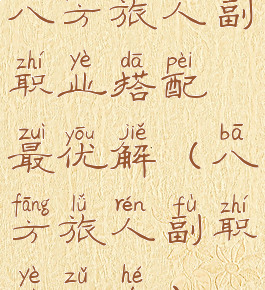 八方旅人副
zhí yè dā pèi
职业搭配
zuì yōu jiě bā
最优解（八
fāng lǚ rén fù zhí
方旅人副职
yè zǔ hé